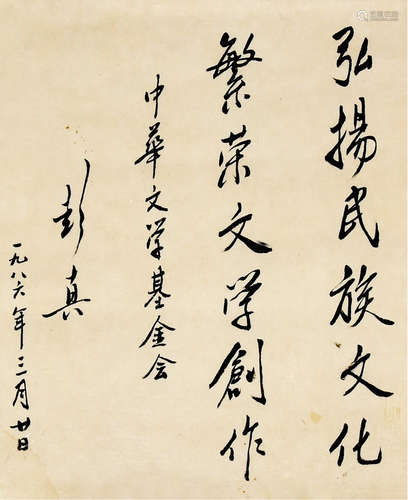 弘揚民族文化
繁荣文学創作
中華文学基金会
彭真
一九八六年三月廿日